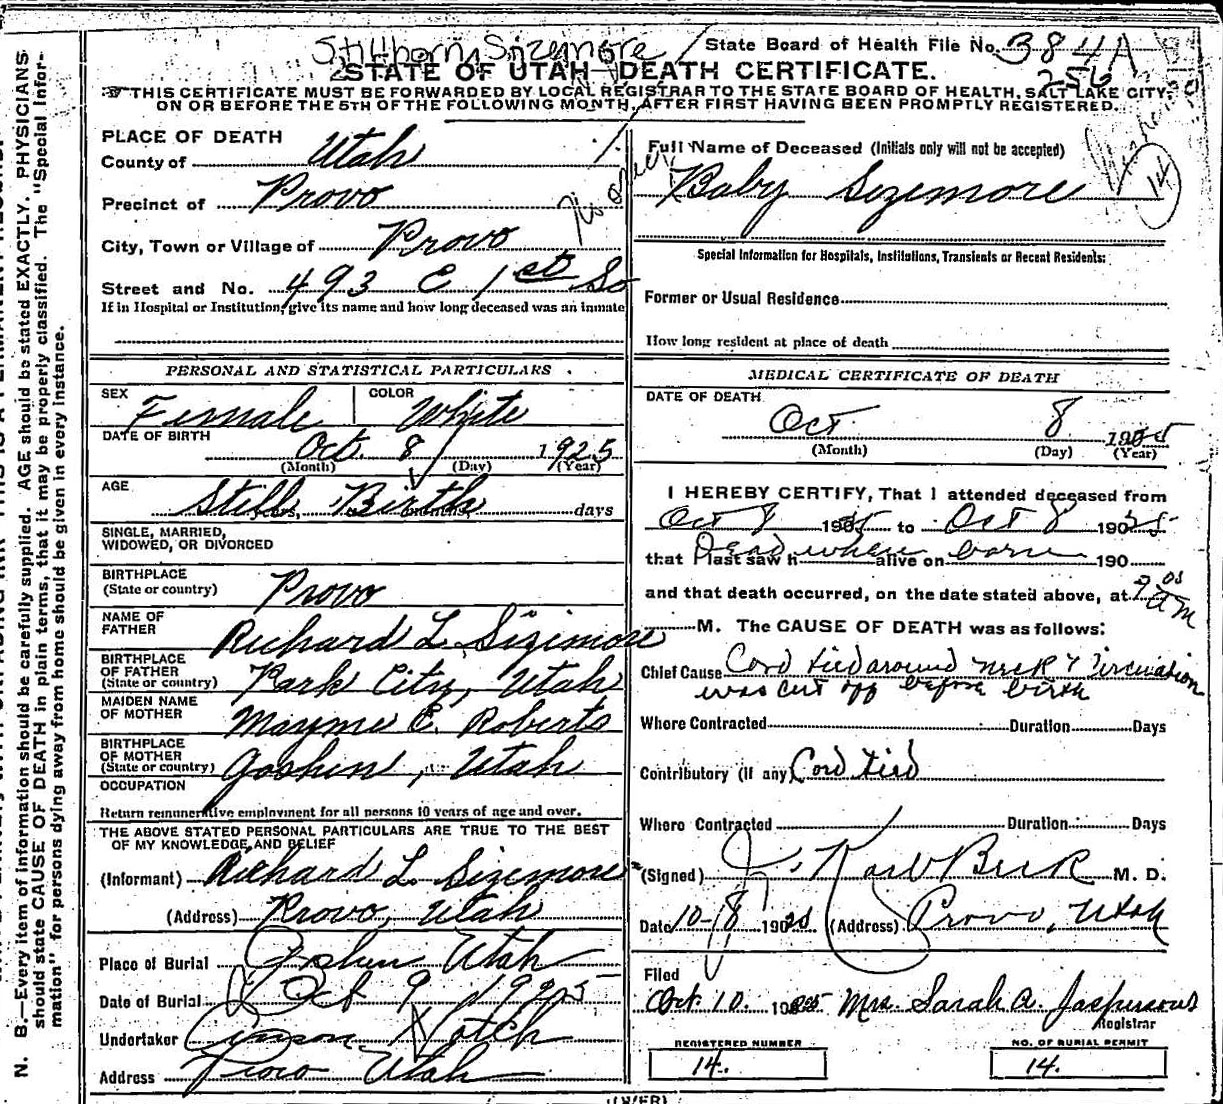 Stillborn Sizemore
State Board of Health File No. 384A
256
STATE OF UTAH—DEATH CERTIFICATE.
THIS CERTIFICATE MUST BE FORWARDED BY LOCAL REGISTRAR TO THE STATE BOARD OF HEALTH, SALT LAKE CITY,
ON OR BEFORE THE 5TH OF THE FOLLOWING MONTH, AFTER FIRST HAVING BEEN PROMPTLY REGISTERED.
PLACE OF DEATH
County of Utah
Precinct of Provo
City, Town or Village of Provo
Street and No. 493 E 1st So
If in Hospital or Institution, give its name and how long deceased was an inmate
Full Name of Deceased (Initials only will not be accepted)
Baby Sizemore
14
Special Information for Hospitals, Institutions, Transients or Recent Residents:
Former or Usual Residence
How long resident at place of death
PERSONAL AND STATISTICAL PARTICULARS
SEX Female COLOR White
DATE OF BIRTH Oct. 8 1925
(Month) (Day) (Year)
AGE Still Birth days
SINGLE, MARRIED,
WIDOWED, OR DIVORCED
BIRTHPLACE
(State or country) Provo
NAME OF
FATHER Richard L. Sizimore
BIRTHPLACE
OF FATHER
(State or country) Park City, Utah
MAIDEN NAME
OF MOTHER Mayme E. Roberts
BIRTHPLACE
OF MOTHER
(State or country) Goshen, Utah
OCCUPATION
Return remunerative employment for all persons 10 years of age and over.
THE ABOVE STATED PERSONAL PARTICULARS ARE TRUE TO THE BEST
OF MY KNOWLEDGE AND BELIEF
(Informant) Richard L. Sizemore
(Address) Provo, Utah
Place of Burial Goshen Utah
Date of Burial Oct 9 1925
Undertaker Hatch
Address Provo Utah
MEDICAL CERTIFICATE OF DEATH
DATE OF DEATH
Oct 8 1925
(Month) (Day) (Year)
I HEREBY CERTIFY, That I attended deceased from
Oct 8 1925 to Oct 8 190 25
that I last saw h alive on 190
Dead when born
and that death occurred, on the date stated above, at 7 05 am
M. The CAUSE OF DEATH was as follows:
Chief Cause Cord tied around neck & circulation
was cut off before birth
Where Contracted Duration Days
Contributory (if any) Cord tied
Where Contracted Duration Days
(Signed) J. Karl Beck M. D.
Date 10-8 1925 (Address) Provo, Utah
Filed
Oct. 10. 1925 Mrs. Sarah A. Jasperson
Registrar
REGISTERED NUMBER
14.
NO. OF BURIAL PERMIT
14.
N. B.—Every item of information should be carefully supplied. AGE should be stated EXACTLY. PHYSICIANS
should state CAUSE OF DEATH in plain terms, that it may be properly classified. The "Special Infor-
mation" for persons dying away from home should be given in every instance.